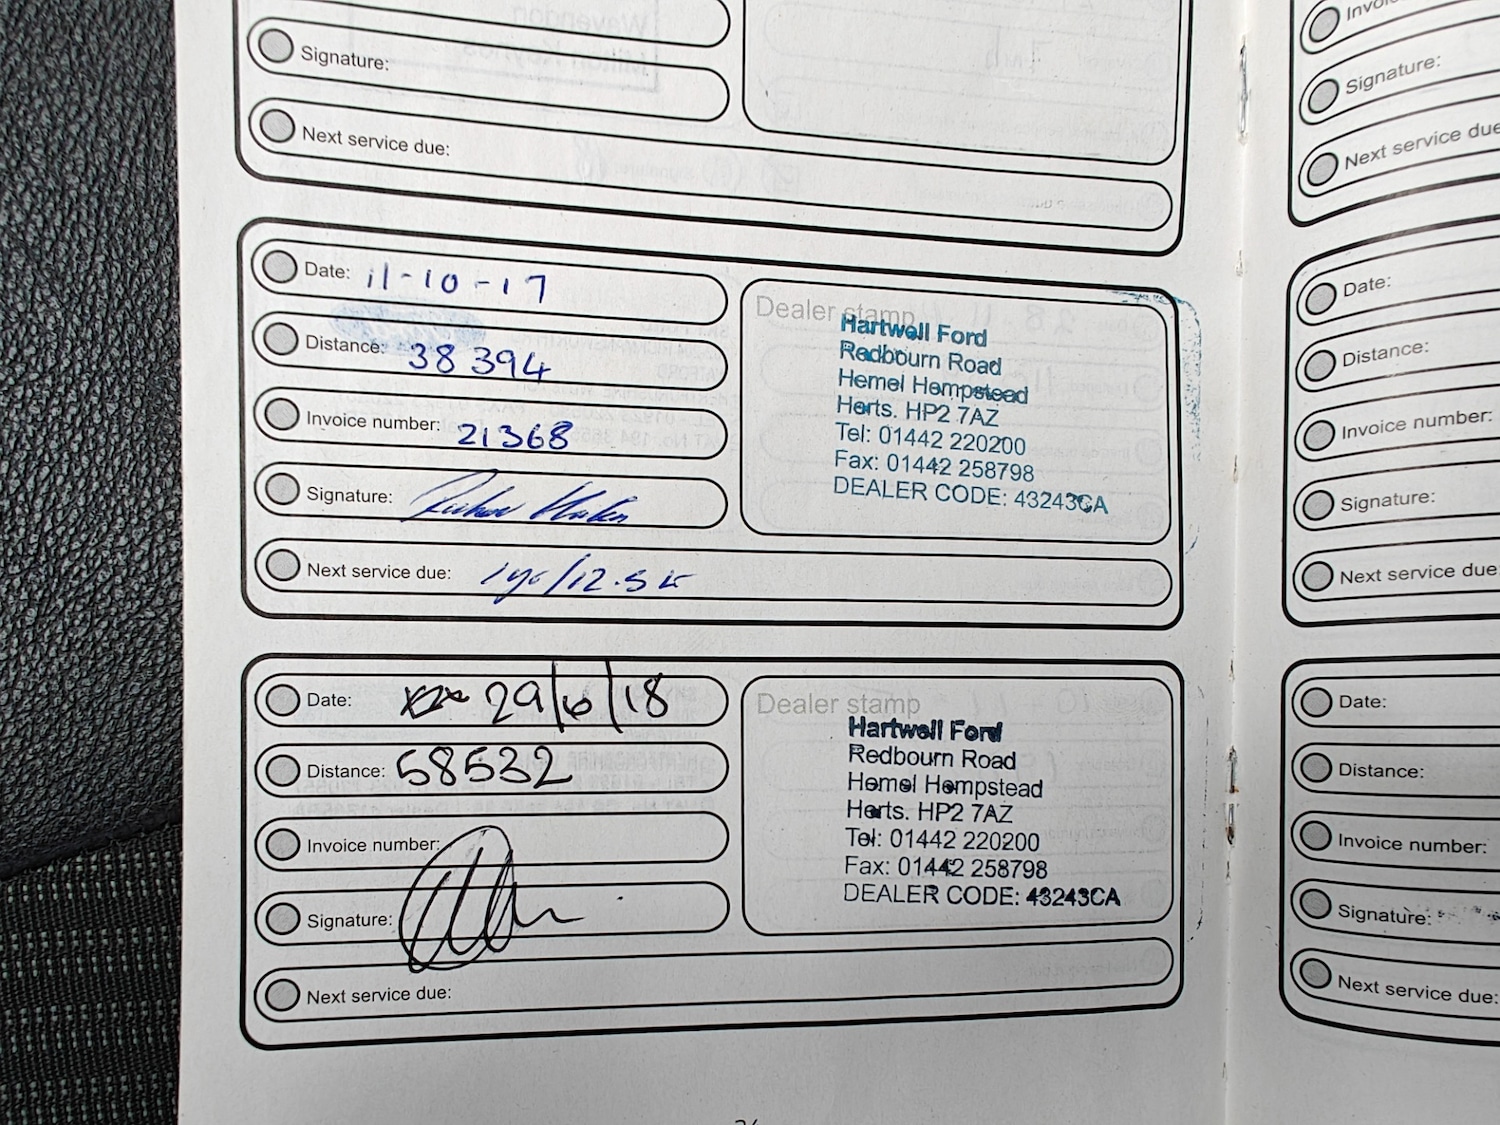 Signature:
Next service due:
Date: 11-10-17
Distance: 38394
Invoice number: 21368
Signature:
Next service due: 1yr/12.5k
Dealer stamp
Hartwell Ford
Redbourn Road
Hemel Hempstead
Herts. HP2 7AZ
Tel: 01442 220200
Fax: 01442 258798
DEALER CODE: 43243CA
Date: 29/6/18
Distance: 58532
Invoice number:
Signature:
Next service due:
Dealer stamp
Hartwell Ford
Redbourn Road
Hemel Hempstead
Herts. HP2 7AZ
Tel: 01442 220200
Fax: 01442 258798
DEALER CODE: 43243CA
Signature:
Next service due
Date:
Distance:
Invoice number:
Signature:
Next service due
Date:
Distance:
Invoice number:
Signature:
Next service due: